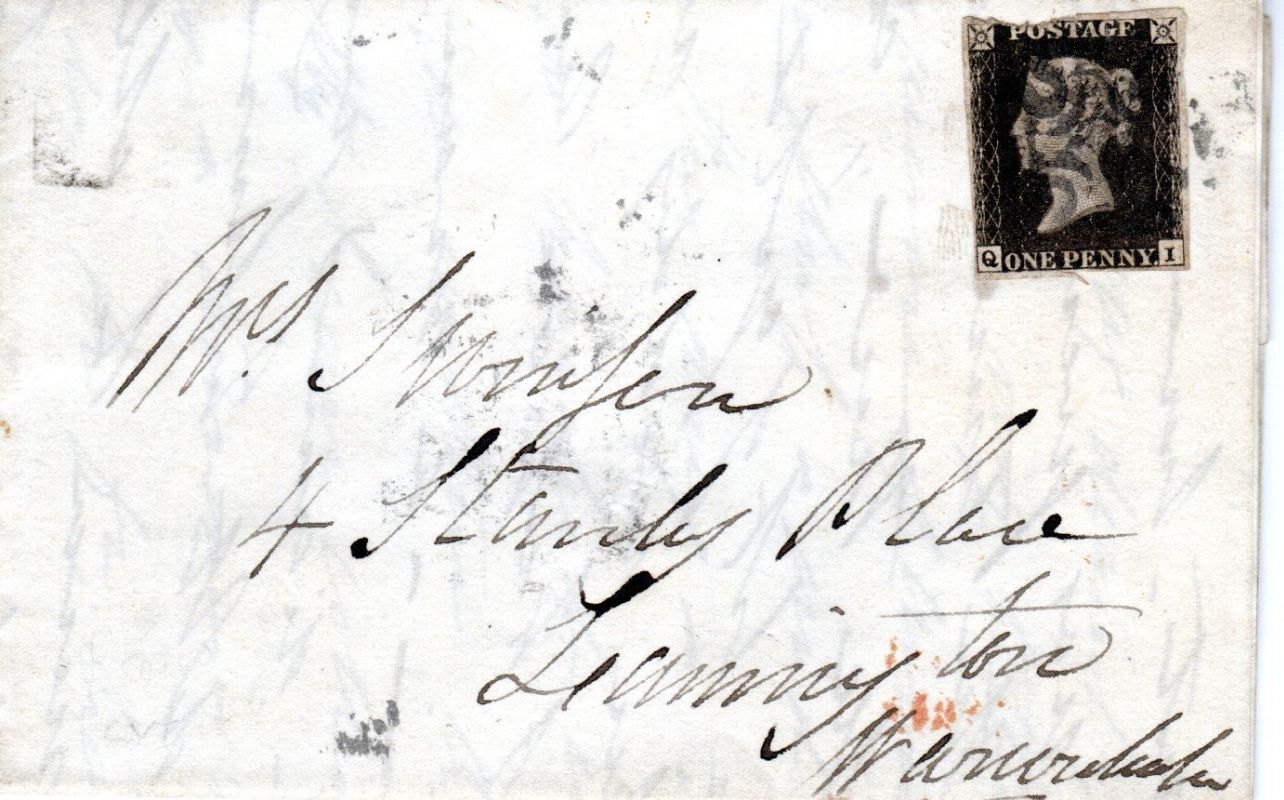 POSTAGE
Q ONE PENNY I
Mrs
4 Stanley Place
Leamington
Warwickshire